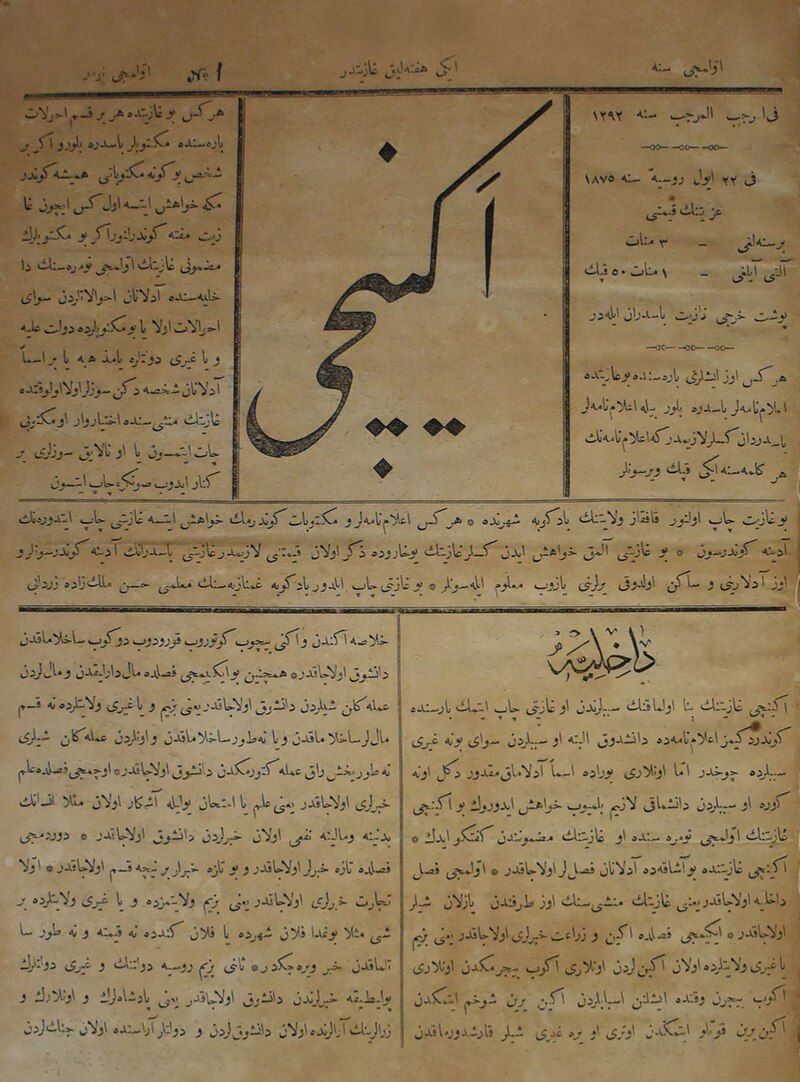 اوّلمجی سنه
ایکی هفته‌لیق غازیتدر
اوّلمجی نومر № 1
فی ا رجب المرجب سنه ١٢٩٢
فی ٢٢ ایول روسیه سنه ١٨٧٥
غزیتنك قیمتی
برسنه‌لغی - ٣ منات
آلتی آیلغی - ١ منات ٥٠ قپك
پوشت خرجی نازیت باسدران ایله‌در
هر کس اوز ایشلری باره‌سنده بو غازیتده
اعلام‌نامه‌لر باسدره بلور بیله اعلام‌نامه‌لر
باسدردان کسلر لازیمدر که اعلام‌نامه‌نك
هر کلمه‌سنه ایکی قپك ویرسونلر
اَکینچی
هر کس بو غازیتده هر بر قسم احوالات
باره‌سنده مکتوبلر باسدره بلور و اکر بر
شخص بو کونه مکتوباتی همیشه کوندر
مکه خواهش ایتسه اول کس ایچون غا
زیت مفته کوندرلنور اکر بو مکتوبلرك
مضمونی غازیتك اوّلمجی نومره‌سنك دا
خلیه‌سنده آدلانان احوالاتلردن سوای
احوالات اولا یا بو مکتوبلرده دولت علیه
و یا غیری دوتلره یامذهبه یا بر اسماً
آدلانان شخصه دکن سوزلر اولا اولوقتده
غازیتك منشی‌سنده اختیار وار او مکتوبی
چاپ ایتمسون یا او نالایق سوزلری بر
کنار ایدوب صونکره چاپ ایتسون
بو غازیت چاپ اولنور قافقاز ولایتنك بادکوبه شهرنده * هر کس اعلام‌نامه‌لر و مکتوبات کوندرمك خواهش ایتسه غازیتی چاپ ایتدوره‌نك
آدینه کوندرسون * بو غازیتی آلمق خواهش ایدن کسلر غازیتك یوخاروده ذکر اولان قیمتنی لازیمدر غازیتی باسدرانك آدینه کوندرسونلر و
اوز آدلارینی و ساکن اولدوقی یرلری یازوب معلوم ایله‌سونلر * بو غازیتی چاپ ایلدور بادکوبه غمنازیه‌سنك معلمی حسن ملك‌زاده زردابی
داخلیه
اکینچی غازیتنك بنا اولماقنك سببلرندن او غازیتی چاپ ایتمك بارسنده
کوندردکیمز اعلام‌نامه‌ده دانشدوق البته او سببلردن سوای بونه غیری
سببلرده چوخدر امّا اونلاری بوراده اسماً آدلاماق مقدور دکل اونه
کوره او سببلردن دانشماقی لازیم بلمیوب خواهش ایدوروك بو اکینچی
غازیتنك اوّلمجی نومره سنده او غازیتنك مضموندن کفتکو ایدك *
اکینچی غازیتنده بو آشاقه‌ده آدلانان فصل‌لر اولاجاقدر * اوّلمجی فصل
داخلیه اولاجاقدر یعنی غازیتك منشی‌سنك اوز طرفندن یازلان شیلر
اولاجاقدر * ایکیمجی فصلده اکین و زراعت خبرلری اولاجاقدر یعنی بزیم
یا غیری ولایتلرده اولان اکین‌لردن اونلاری اکوب بیجرمکدن اونلاری
اکوب بیجرن وقتده ایشلنن اسبابلردن اکین یرین شوخم ایتمکدن
اکین یرین قوتلو ایتمکدن اوتری او یره غیری شیلر قارشدورماقدن
خلاصه اکندن و اکنی بیچوب کوتوروب قورودوب دوکوب ساخلاماقدن
دانشوق اولاجاقدر * همچنین بو ایکیمجی فصلده مال‌دارلیقدن و مال‌لردن
عمله کلن شیلردن دانشوق اولاجاقدر یعنی بزیم و یا غیری ولایتلرده نه قسم
مال‌لر ساخلاماقدن و یا نه‌طور ساخلاماقدن و اونلردن عمله کلن شیلری
نه طور یخشی راق عمله کتورمکدن دانشوق اولاجاقدر * اوچمجی فصلده علم
خبرلری اولاجاقدر یعنی علم یا امتحان یولیله آشکار اولان مثلا انسانك
بدنینه و مالینه نفعی اولان خبرلردن دانشوق اولاجاقدر * دوردمجی
فصلده تازه خبرلر اولاجاقدر و بو تازه خبرلر بر نیچه قسم اولاجاقدر * اوّلا
تجارت خبرلری اولاجاقدر یعنی بزیم ولایتمزده و یا غیری ولایتلرده بر
شی مثلا بوغدا فلان شهرده یا فلان کندده نه قیمته و نه طور سا
تلماقدن خبر ویره‌جکدر * ثانی بزیم روسیه دولتنك و غیری دولتلرك
پولیطیقه خبرلرندن دانشوق اولاجاقدر یعنی پادشاه‌لرك و اونلارك و
وزرالرینك آرالرنده اولان دانشوق‌لردن و دولتلر آراسنده اولان جنك‌لردن